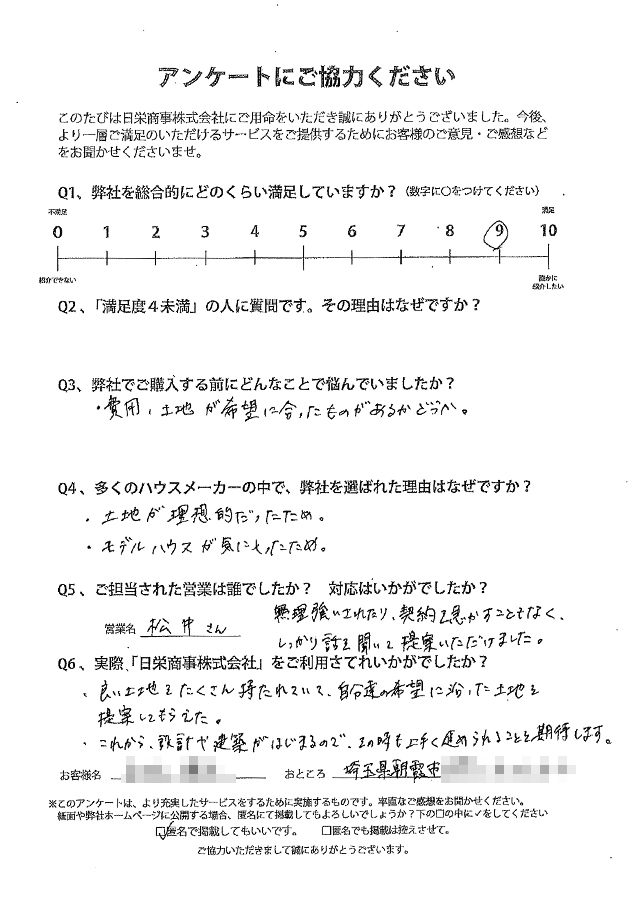 アンケートにご協力ください
このたびは日栄商事株式会社にご用命をいただき誠にありがとうございました。今後、
より一層ご満足のいただけるサービスをご提供するためにお客様のご意見・ご感想など
をお聞かせくださいませ。
Q1、弊社を総合的にどのくらい満足していますか？（数字に○をつけてください）
不満足 満足
0 1 2 3 4 5 6 7 8 9 10
紹介できない 誰かに
紹介したい
Q2、「満足度４未満」の人に質問です。その理由はなぜですか？
Q3、弊社でご購入する前にどんなことで悩んでいましたか？
・費用、土地が希望に合ったものがあるかどうか。
Q4、多くのハウスメーカーの中で、弊社を選ばれた理由はなぜですか？
・土地が理想的だったため。
・モデルハウスが気に入ったため。
Q5、ご担当された営業は誰でしたか？　対応はいかがでしたか？
営業名 松井さん
無理強いされたり、契約を急かすこともなく、
しっかり話を聞いて提案いただけました。
Q6、実際、「日栄商事株式会社」をご利用さてれいかがでしたか？
・良い土地をたくさん持たれていて、自分達の希望に沿った土地を
提案してもらえた。
・これから、設計や建築がはじまるので、その時も上手く進められることを期待します。
お客様名 おところ 埼玉県朝霞市
※このアンケートは、より充実したサービスをするために実施するものです。率直なご感想をお聞かせください。
紙面や弊社ホームページに公開する場合、匿名にて掲載してもよろしいでしょうか？下の□の中に✓をしてください
☑匿名で掲載してもいいです。 □匿名でも掲載は控えさせて。
ご協力いただきまして誠にありがとうございます。